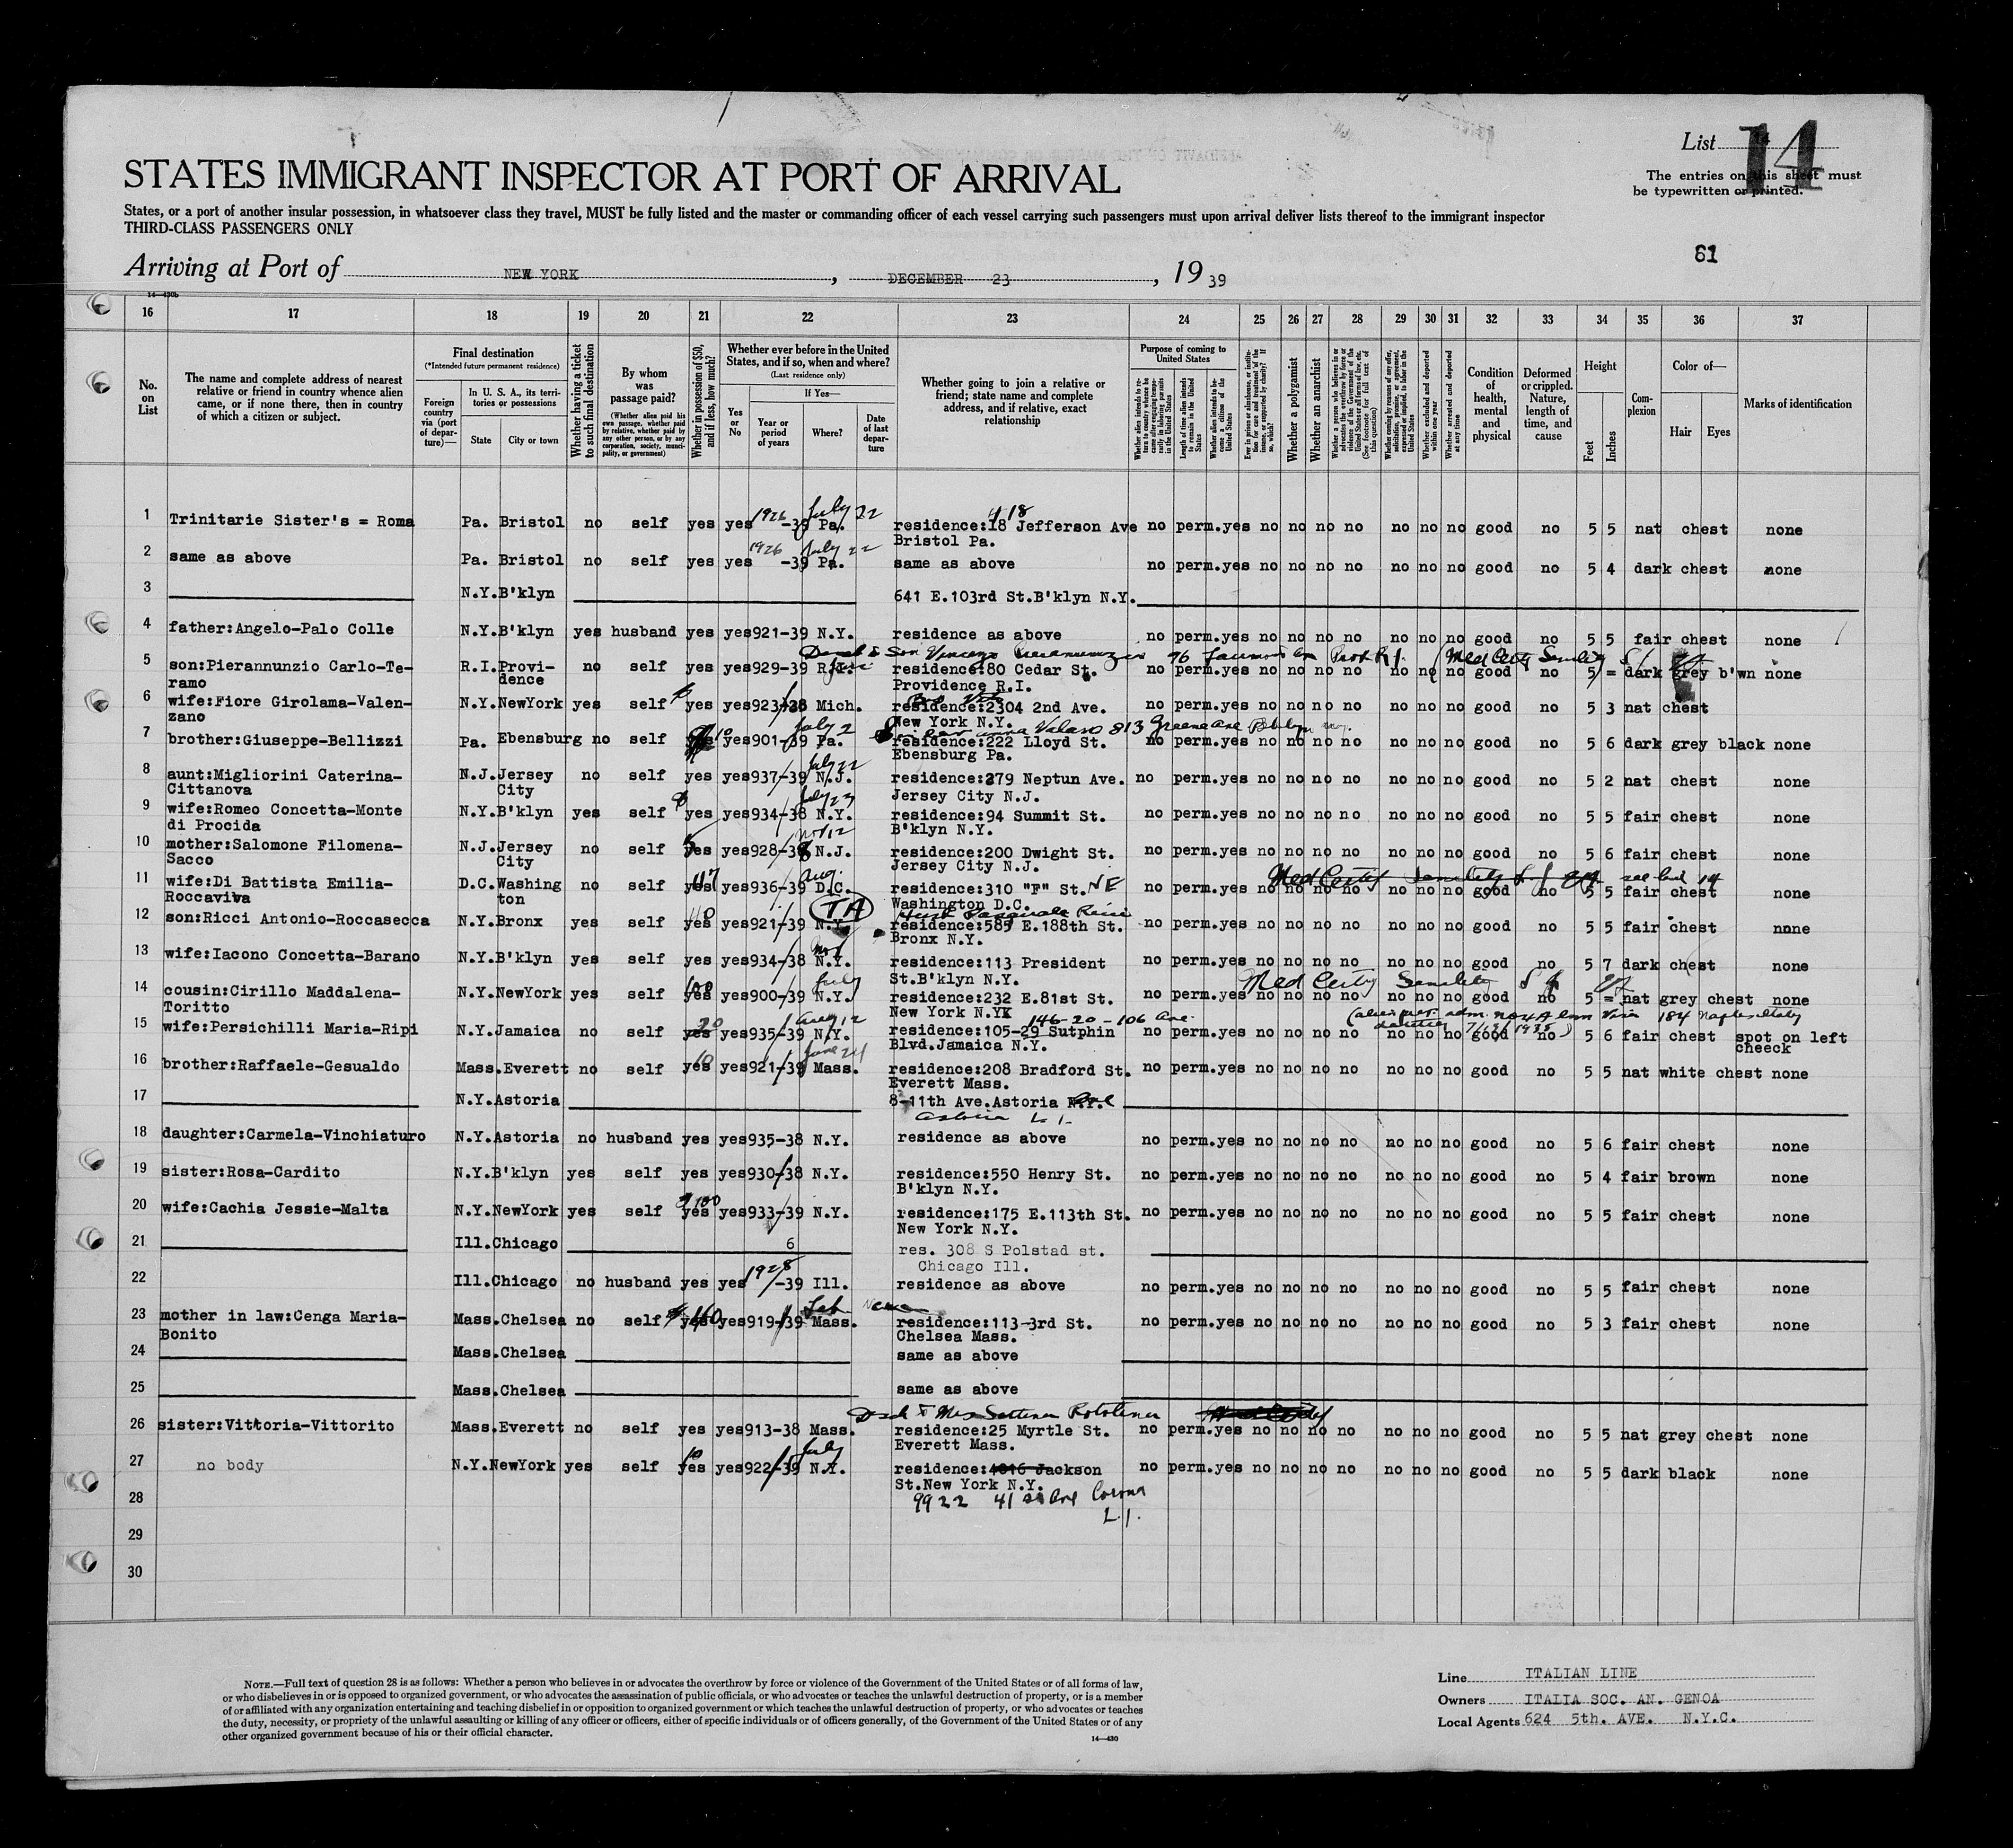 List 14
14
The entries on this sheet must
be typewritten or printed.
STATES IMMIGRANT INSPECTOR AT PORT OF ARRIVAL
States, or a port of another insular possession, in whatsoever class they travel, MUST be fully listed and the master or commanding officer of each vessel carrying such passengers must upon arrival deliver lists thereof to the immigrant inspector
THIRD-CLASS PASSENGERS ONLY
61
Arriving at Port of NEW YORK, DECEMBER 23, 1939
14—430b
16 17 18 19 20 21 22 23 24 25 26 27 28 29 30 31 32 33 34 35 36 37
No. on List
The name and complete address of nearest relative or friend in country whence alien came, or if none there, then in country of which a citizen or subject.
Final destination
(*Intended future permanent residence)
Foreign country via (port of departure)—
In U. S. A., its territories or possessions
State
City or town
Whether having a ticket to such final destination
By whom was passage paid?
(Whether alien paid his own passage, whether paid by relative, whether paid by any other person, or by any corporation, society, municipality, or government)
Whether in possession of $50, and if less, how much?
Whether ever before in the United States, and if so, when and where?
(Last residence only)
Yes or No
If Yes—
Year or period of years
Where?
Date of last departure
Whether going to join a relative or friend; state name and complete address, and if relative, exact relationship
Purpose of coming to United States
Whether alien intends to return to country whence he came after engaging temporarily in laboring pursuits in the United States
Length of time alien intends to remain in the United States
Whether alien intends to become a citizen of the United States
Ever in prison or almshouse, or institution for care and treatment of the insane, or supported by charity? If so, which?
Whether a polygamist
Whether an anarchist
Whether a person who believes in or advocates the overthrow by force or violence of the Government of the United States or all forms of law, etc. (See footnote for full text of this question)
Whether coming by reasons of any offer, solicitation, promise, or agreement, expressed or implied, to labor in the United States
Whether excluded and deported within one year
Whether arrested and deported at any time
Condition of health, mental and physical
Deformed or crippled. Nature, length of time, and cause
Height
Feet
Inches
Complexion
Color of—
Hair
Eyes
Marks of identification
1 Trinitarie Sister's = Roma Pa. Bristol no self yes yes 1926 -39 Pa. July 22 residence:18 Jefferson Ave 418 no perm. yes no no no no no no no good no 5 5 nat chest none
Bristol Pa.
2 same as above Pa. Bristol no self yes yes 1926 -39 Pa. July 22 same as above no perm. yes no no no no no no no good no 5 4 dark chest none
3 N.Y. B'klyn 641 E.103rd St.B'klyn N.Y.
4 father:Angelo-Palo Colle N.Y. B'klyn yes husband yes yes 921-39 N.Y. residence as above no perm. yes no no no no no no no good no 5 5 fair chest none
5 son:Pierannunzio Carlo-Te-
ramo R.I. Provi-
dence no self yes yes 929-39 R.I. residence:80 Cedar St. no perm. yes no no no no no no no good no 5 = dark grey b'wn none
Providence R.I.
6 wife:Fiore Girolama-Valen-
zano N.Y. NewYork yes self yes yes 923-38 Mich. residence:2304 2nd Ave. no perm. yes no no no no no no no good no 5 3 nat chest
New York N.Y.
813 Greene Ave
7 brother:Giuseppe-Bellizzi Pa. Ebensburg no self 10 yes 901-39 Pa. July 2 residence:222 Lloyd St. no perm. yes no no no no no no no good no 5 6 dark grey black none
Ebensburg Pa.
8 aunt:Migliorini Caterina-
Cittanova N.J. Jersey
City no self yes yes 937-39 N.J. July 22 residence:279 Neptun Ave. no perm. yes no no no no no no no good no 5 2 nat chest none
Jersey City N.J.
9 wife:Romeo Concetta-Monte
di Procida N.Y. B'klyn yes self yes yes 934-38 N.Y. July 23 residence:94 Summit St. no perm. yes no no no no no no no good no 5 5 fair chest none
B'klyn N.Y.
10 mother:Salomone Filomena-
Sacco N.J. Jersey
City no self yes yes 928-38 N.J. Nov 12 residence:200 Dwight St. no perm. yes no no no no no no no good no 5 6 fair chest none
Jersey City N.J.
Med Certif Senility see line 14
11 wife:Di Battista Emilia-
Roccaviva D.C. Washing
ton no self yes yes 936-39 D.C. Aug. residence:310 "F" St. NE no perm. yes no no no no no no no good no 5 5 fair chest none
Washington D.C.
12 son:Ricci Antonio-Roccasecca N.Y. Bronx yes self yes yes 921-39 N.Y. TA residence:585 E.188th St. no perm. yes no no no no no no no good no 5 5 fair chest none
Bronx N.Y.
13 wife:Iacono Concetta-Barano N.Y. B'klyn yes self yes yes 934-38 N.Y. Nov residence:113 President no perm. yes no no no no no no no good no 5 7 dark chest none
St.B'klyn N.Y.
Med Certif Senility
14 cousin:Cirillo Maddalena-
Toritto N.Y. NewYork yes self yes 100 yes 900-39 N.Y. July residence:232 E.81st St. no perm. yes no no no no no no no good no 5 = nat grey chest none
New York N.Y.
146-20-106 Ave.
15 wife:Persichilli Maria-Ripi N.Y. Jamaica no self yes 20 yes 935-39 N.Y. Aug 12 residence:105-29 Sutphin no perm. yes no no no no no no no good no 5 6 fair chest spot on left
cheeck
Blvd.Jamaica N.Y.
16 brother:Raffaele-Gesualdo Mass. Everett no self yes 10 yes 921-39 Mass. June 24 residence:208 Bradford St. no perm. yes no no no no no no no good no 5 5 nat white chest none
Everett Mass.
17 N.Y. Astoria 8-11th Ave.Astoria N.Y.
Astoria L.I.
18 daughter:Carmela-Vinchiaturo N.Y. Astoria no husband yes yes 935-38 N.Y. residence as above no perm. yes no no no no no no no good no 5 6 fair chest none
19 sister:Rosa-Cardito N.Y. B'klyn yes self yes yes 930-38 N.Y. residence:550 Henry St. no perm. yes no no no no no no no good no 5 4 fair brown none
B'klyn N.Y.
20 wife:Cachia Jessie-Malta N.Y. NewYork yes self yes 100 yes 933-39 N.Y. residence:175 E.113th St. no perm. yes no no no no no no no good no 5 5 fair chest none
New York N.Y.
21 Ill. Chicago 6 res. 308 S Polstad st.
Chicago Ill.
22 Ill. Chicago no husband yes yes 1928 -39 Ill. residence as above no perm. yes no no no no no no no good no 5 5 fair chest none
23 mother in law:Cenga Maria-
Bonito Mass. Chelsea no self yes yes 919-39 Mass. residence:113-3rd St. no perm. yes no no no no no no no good no 5 3 fair chest none
Chelsea Mass.
24 Mass. Chelsea same as above
25 Mass. Chelsea same as above
26 sister:Vittoria-Vittorito Mass. Everett no self yes yes 913-38 Mass. residence:25 Myrtle St. no perm. yes no no no no no no no good no 5 5 nat grey chest none
Everett Mass.
27 no body N.Y. NewYork yes self yes 10 yes 922-39 N.Y. July residence:4016 Jackson no perm. yes no no no no no no no good no 5 5 dark black none
St.New York N.Y.
28 9922 41 Ave Corona
L.I.
29
30
NOTE.—Full text of question 28 is as follows: Whether a person who believes in or advocates the overthrow by force or violence of the Government of the United States or of all forms of law,
or who disbelieves in or is opposed to organized government, or who advocates the assassination of public officials, or who advocates or teaches the unlawful destruction of property, or is a member
of or affiliated with any organization entertaining and teaching disbelief in or opposition to organized government or which teaches the unlawful destruction of property, or who advocates or teaches
the duty, necessity, or propriety of the unlawful assaulting or killing of any officer or officers, either of specific individuals or of officers generally, of the Government of the United States or of any
other organized government because of his or their official character.
14—430
Line ITALIAN LINE
Owners ITALIA SOC. AN. GENOA
Local Agents 624 5th. AVE. N.Y.C.